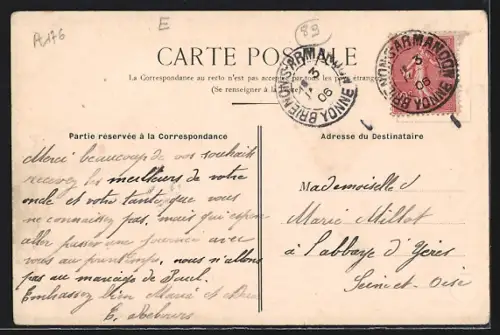 A176
E
89
CARTE POSTALE
La Correspondance au recto n'est pas acceptée par tous les pays étrangers
(Se renseigner à la Poste)
BRIENON-S-ARMANÇON YONNE
3
06
BRIENON-S-ARMANÇON YONNE
3
06
Partie réservée à la Correspondance
Adresse du Destinataire
Merci beaucoup de vos souhaits
recevez les meilleurs de votre
oncle et votre tante, que vous
ne connaissez pas, mais qui
aller passer une journée avec
vous au printemps, nous n'allons
pas au mariage de Paul.
Embrassez bien Marie et
E.
Mademoiselle
Marie Millot
à l'abbaye d'Yères
Seine-et-Oise